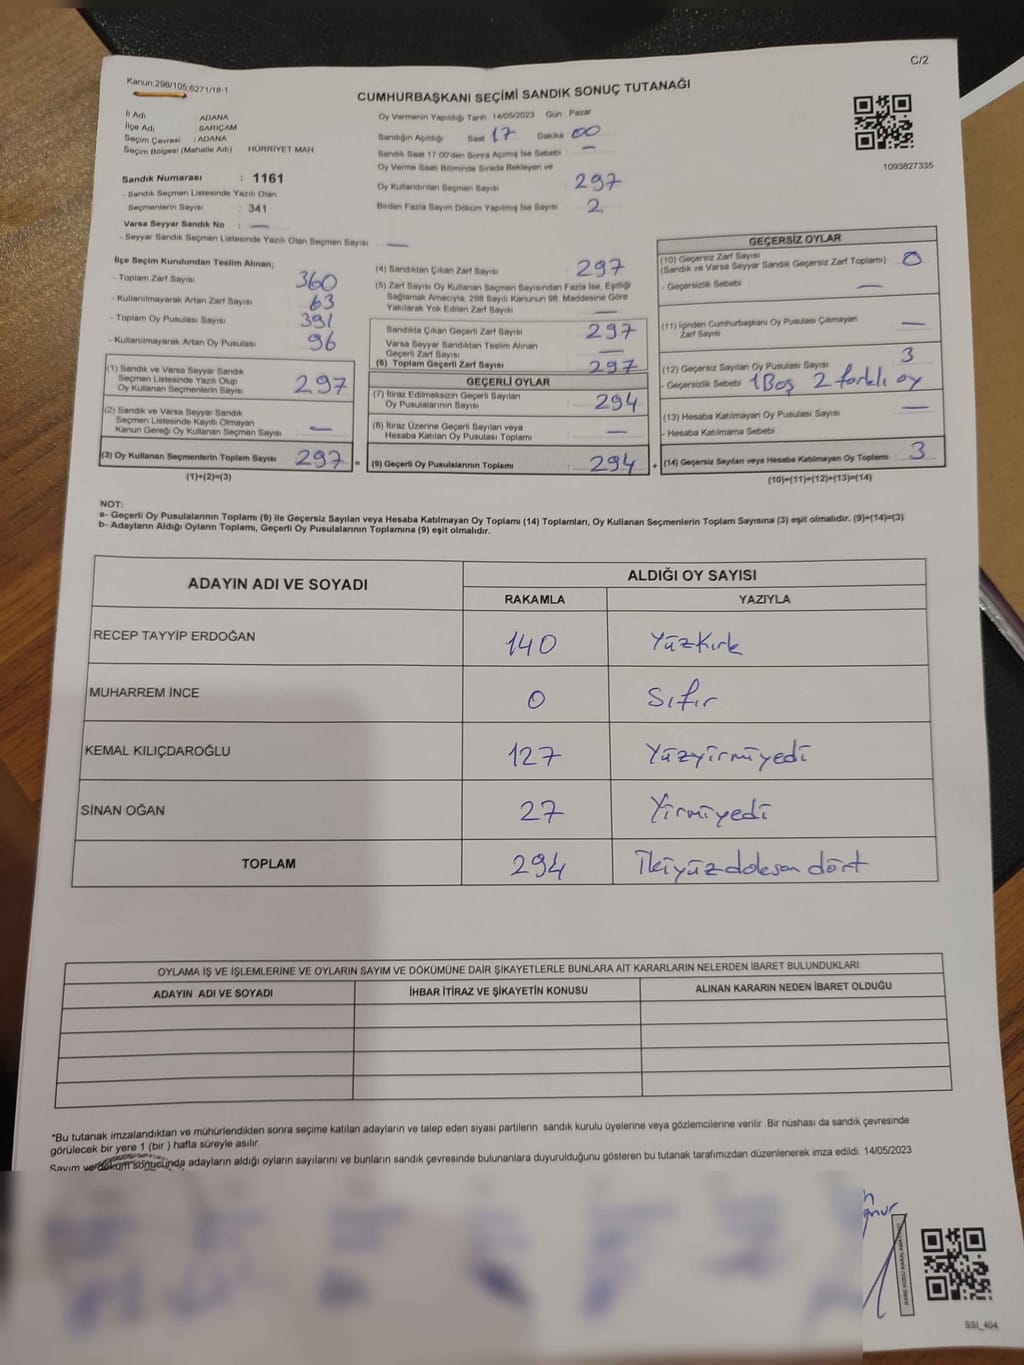 C/2
Kanun;298/105,6271/18-1
CUMHURBAŞKANI SEÇİMİ SANDIK SONUÇ TUTANAĞI
İl Adı : ADANA
İlçe Adı : SARIÇAM
Seçim Çevresi : ADANA
Seçim Bölgesi (Mahalle Adı) HÜRRİYET MAH.
Sandık Numarası : 1161
- Sandık Seçmen Listesinde Yazılı Olan
Seçmenlerin Sayısı : 341
Varsa Seyyar Sandık No : —
- Seyyar Sandık Seçmen Listesinde Yazılı Olan Seçmen Sayısı : —
Oy Vermenin Yapıldığı Tarih 14/05/2023 Gün Pazar
Sandığın Açıldığı Saat 17 Dakika 00
Sandık Saat 17:00'den Sonra Açılmış İse Sebebi —
Oy Verme Saati Bitiminde Sırada Bekleyen ve
Oy Kullandırılan Seçmen Sayısı 297
Birden Fazla Sayım Döküm Yapılmış İse Sayısı 2
1093827335
İlçe Seçim Kurulundan Teslim Alınan;
- Toplam Zarf Sayısı 360
- Kullanılmayarak Artan Zarf Sayısı 63
- Toplam Oy Pusulası Sayısı 391
- Kullanılmayarak Artan Oy Pusulası 96
(1) Sandık ve Varsa Seyyar Sandık
Seçmen Listesinde Yazılı Olup
Oy Kullanan Seçmenlerin Sayısı 297
(2) Sandık ve Varsa Seyyar Sandık
Seçmen Listesinde Kayıtlı Olmayan
Kanun Gereği Oy Kullanan Seçmen Sayısı —
(3) Oy Kullanan Seçmenlerin Toplam Sayısı 297
(1)+(2)=(3)
=
(4) Sandıktan Çıkan Zarf Sayısı 297
(5) Zarf Sayısı Oy Kullanan Seçmen Sayısından Fazla İse, Eşitliği
Sağlamak Amacıyla, 298 Sayılı Kanunun 98. Maddesine Göre
Yakılarak Yok Edilen Zarf Sayısı —
Sandıkta Çıkan Geçerli Zarf Sayısı 297
Varsa Seyyar Sandıktan Teslim Alınan
Geçerli Zarf Sayısı —
(6) Toplam Geçerli Zarf Sayısı 297
GEÇERLİ OYLAR
(7) İtiraz Edilmeksizin Geçerli Sayılan
Oy Pusulalarının Sayısı 294
(8) İtiraz Üzerine Geçerli Sayılan veya
Hesaba Katılan Oy Pusulası Toplamı —
(9) Geçerli Oy Pusulalarının Toplamı : 294
+
GEÇERSİZ OYLAR
(10) Geçersiz Zarf Sayısı
(Sandık ve Varsa Seyyar Sandık Geçersiz Zarf Toplamı) 0
- Geçersizlik Sebebi : —
(11) İçinden Cumhurbaşkanı Oy Pusulası Çıkmayan
Zarf Sayısı —
(12) Geçersiz Sayılan Oy Pusulası Sayısı 3
- Geçersizlik Sebebi 1 Boş 2 farklı oy
(13) Hesaba Katılmayan Oy Pusulası Sayısı —
- Hesaba Katılmama Sebebi :
(14) Geçersiz Sayılan veya Hesaba Katılmayan Oy Toplamı 3
(10)+(11)+(12)+(13)=(14)
NOT:
a- Geçerli Oy Pusulalarının Toplamı (9) ile Geçersiz Sayılan veya Hesaba Katılmayan Oy Toplamı (14) Toplamları, Oy Kullanan Seçmenlerin Toplam Sayısına (3) eşit olmalıdır. (9)+(14)=(3)
b- Adayların Aldığı Oyların Toplamı, Geçerli Oy Pusulalarının Toplamına (9) eşit olmalıdır.
ADAYIN ADI VE SOYADI ALDIĞI OY SAYISI
RAKAMLA YAZIYLA
RECEP TAYYİP ERDOĞAN 140 Yüzkırk
MUHARREM İNCE 0 Sıfır
KEMAL KILIÇDAROĞLU 127 Yüzyirmiyedi
SİNAN OĞAN 27 Yirmiyedi
TOPLAM 294 İkiyüzdoksan dört
OYLAMA İŞ VE İŞLEMLERİNE VE OYLARIN SAYIM VE DÖKÜMÜNE DAİR ŞİKAYETLERLE BUNLARA AİT KARARLARIN NELERDEN İBARET BULUNDUKLARI
ADAYIN ADI VE SOYADI İHBAR İTİRAZ VE ŞİKAYETİN KONUSU ALINAN KARARIN NEDEN İBARET OLDUĞU
*Bu tutanak imzalandıktan ve mühürlendikten sonra seçime katılan adayların ve talep eden siyasi partilerin sandık kurulu üyelerine veya gözlemcilerine verilir .Bir nüshası da sandık çevresinde
görülecek bir yere 1 (bir ) hafta süreyle asılır.
Sayım ve döküm sonucunda adayların aldığı oyların sayılarını ve bunların sandık çevresinde bulunanlara duyurulduğunu gösteren bu tutanak tarafımızdan düzenlenerek imza edildi. 14/05/2023
SSI_404